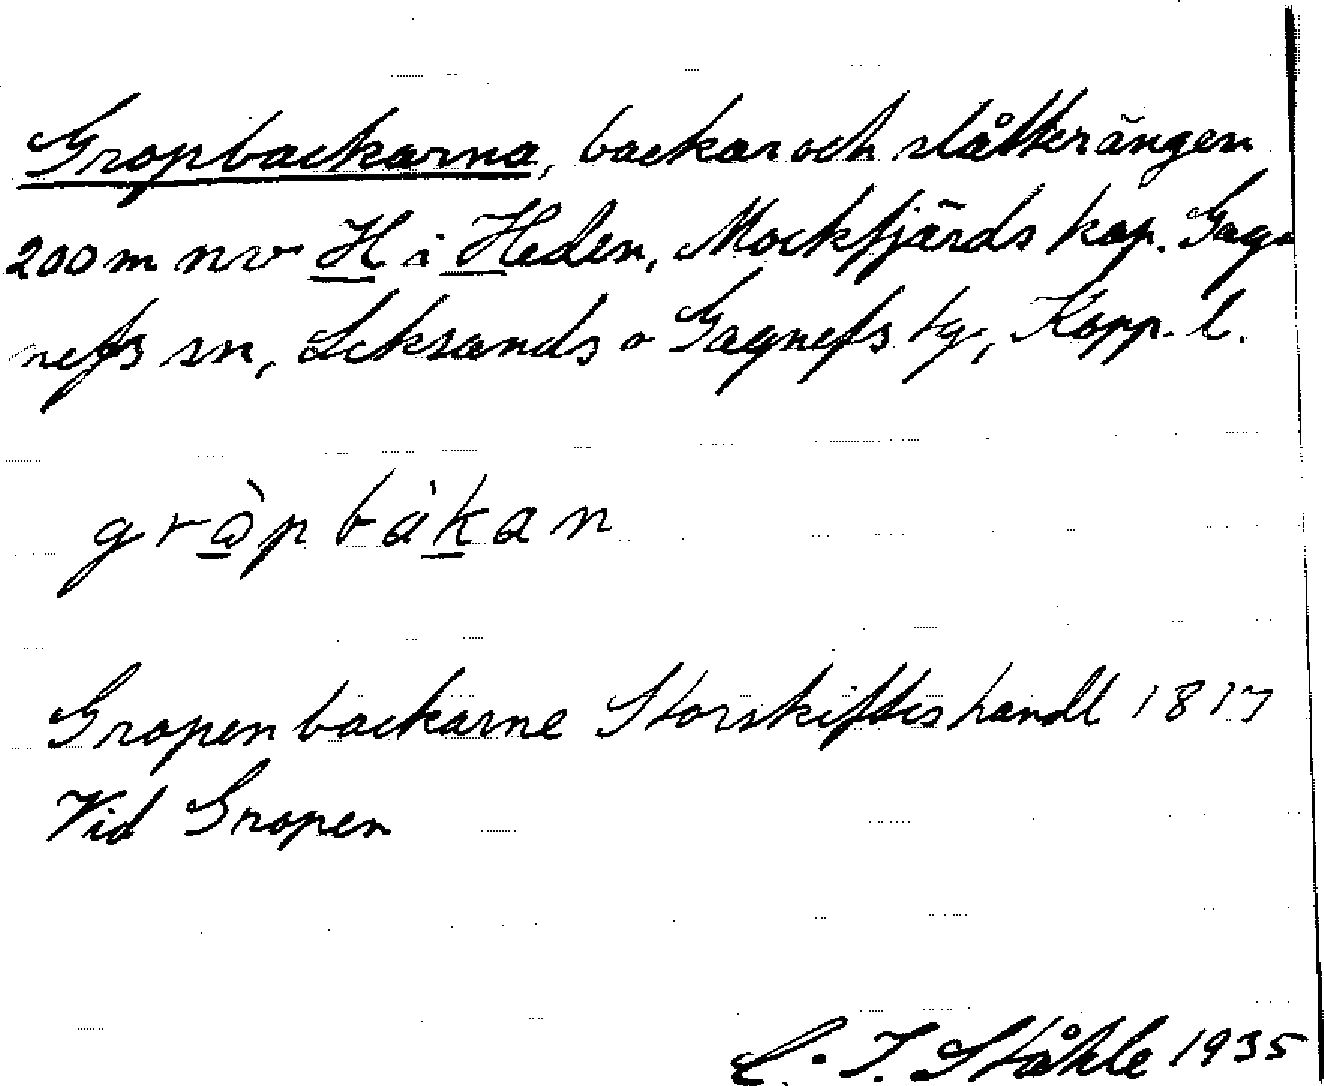 Gropbackarna, backar och slåtterängen
200 m nv H i Heden, Mockfjärds kap. Gag-
nefs sn, Leksands o Gagnefs tg, Kopp. l.
gròpbàkan
Gropenbackarne Storskifteshandl 1817
Vid Gropen
C. I. Ståhle 1935